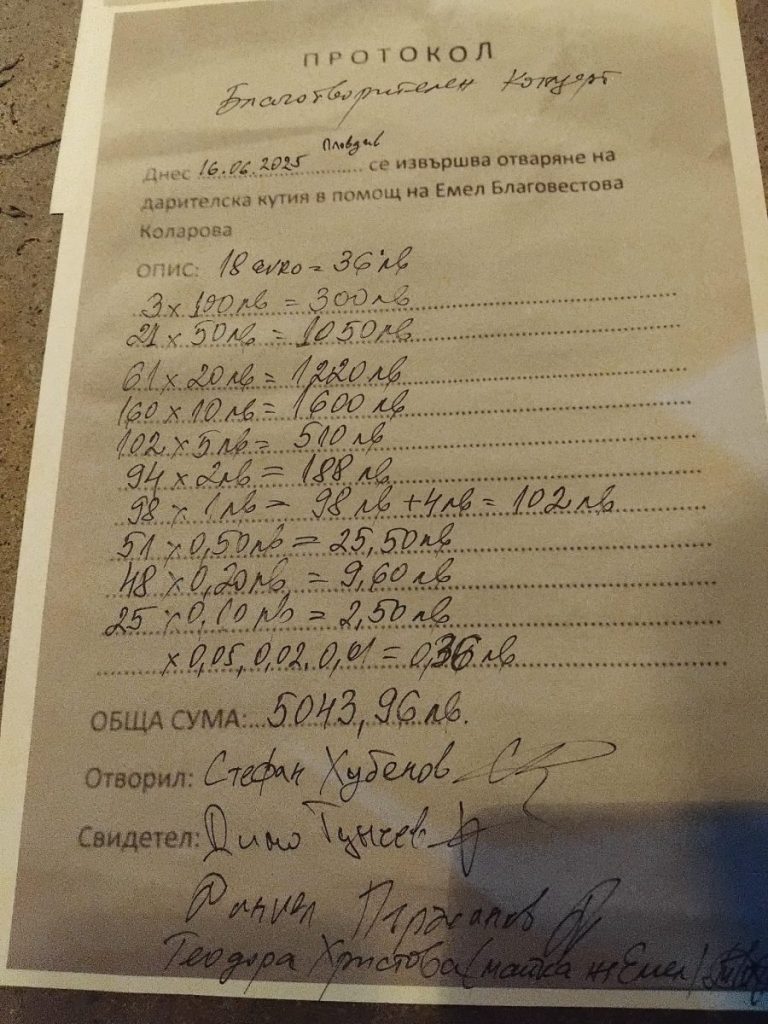 ПРОТОКОЛ
Благотворителен концерт
Пловдив
Днес 16.06.2025 се извършва отваряне на
дарителска кутия в помощ на Емел Благовестова
Коларова
ОПИС: 18 euro = 36 лв
3 x 100лв = 300лв
21 x 50лв = 1050лв
61 x 20лв = 1220лв
160 x 10лв = 1600лв
102 x 5лв = 510 лв
94 x 2лв = 188 лв
98 x 1лв = 98 лв + 4лв = 102 лв
51 x 0,50лв = 25,50лв
48 x 0,20лв = 9,60лв
25 x 0,10лв = 2,50лв
x 0,05, 0,02, 0,01 = 0,36 лв
ОБЩА СУМА: 5043,96лв.
Отворил: Стефан Хубенов
Свидетел: Димо Тунчев
Теодора Христова (майка на Емел)